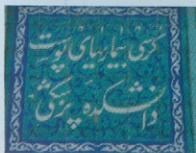 گروه بیماریهای پوست
دانشکده پزشکی